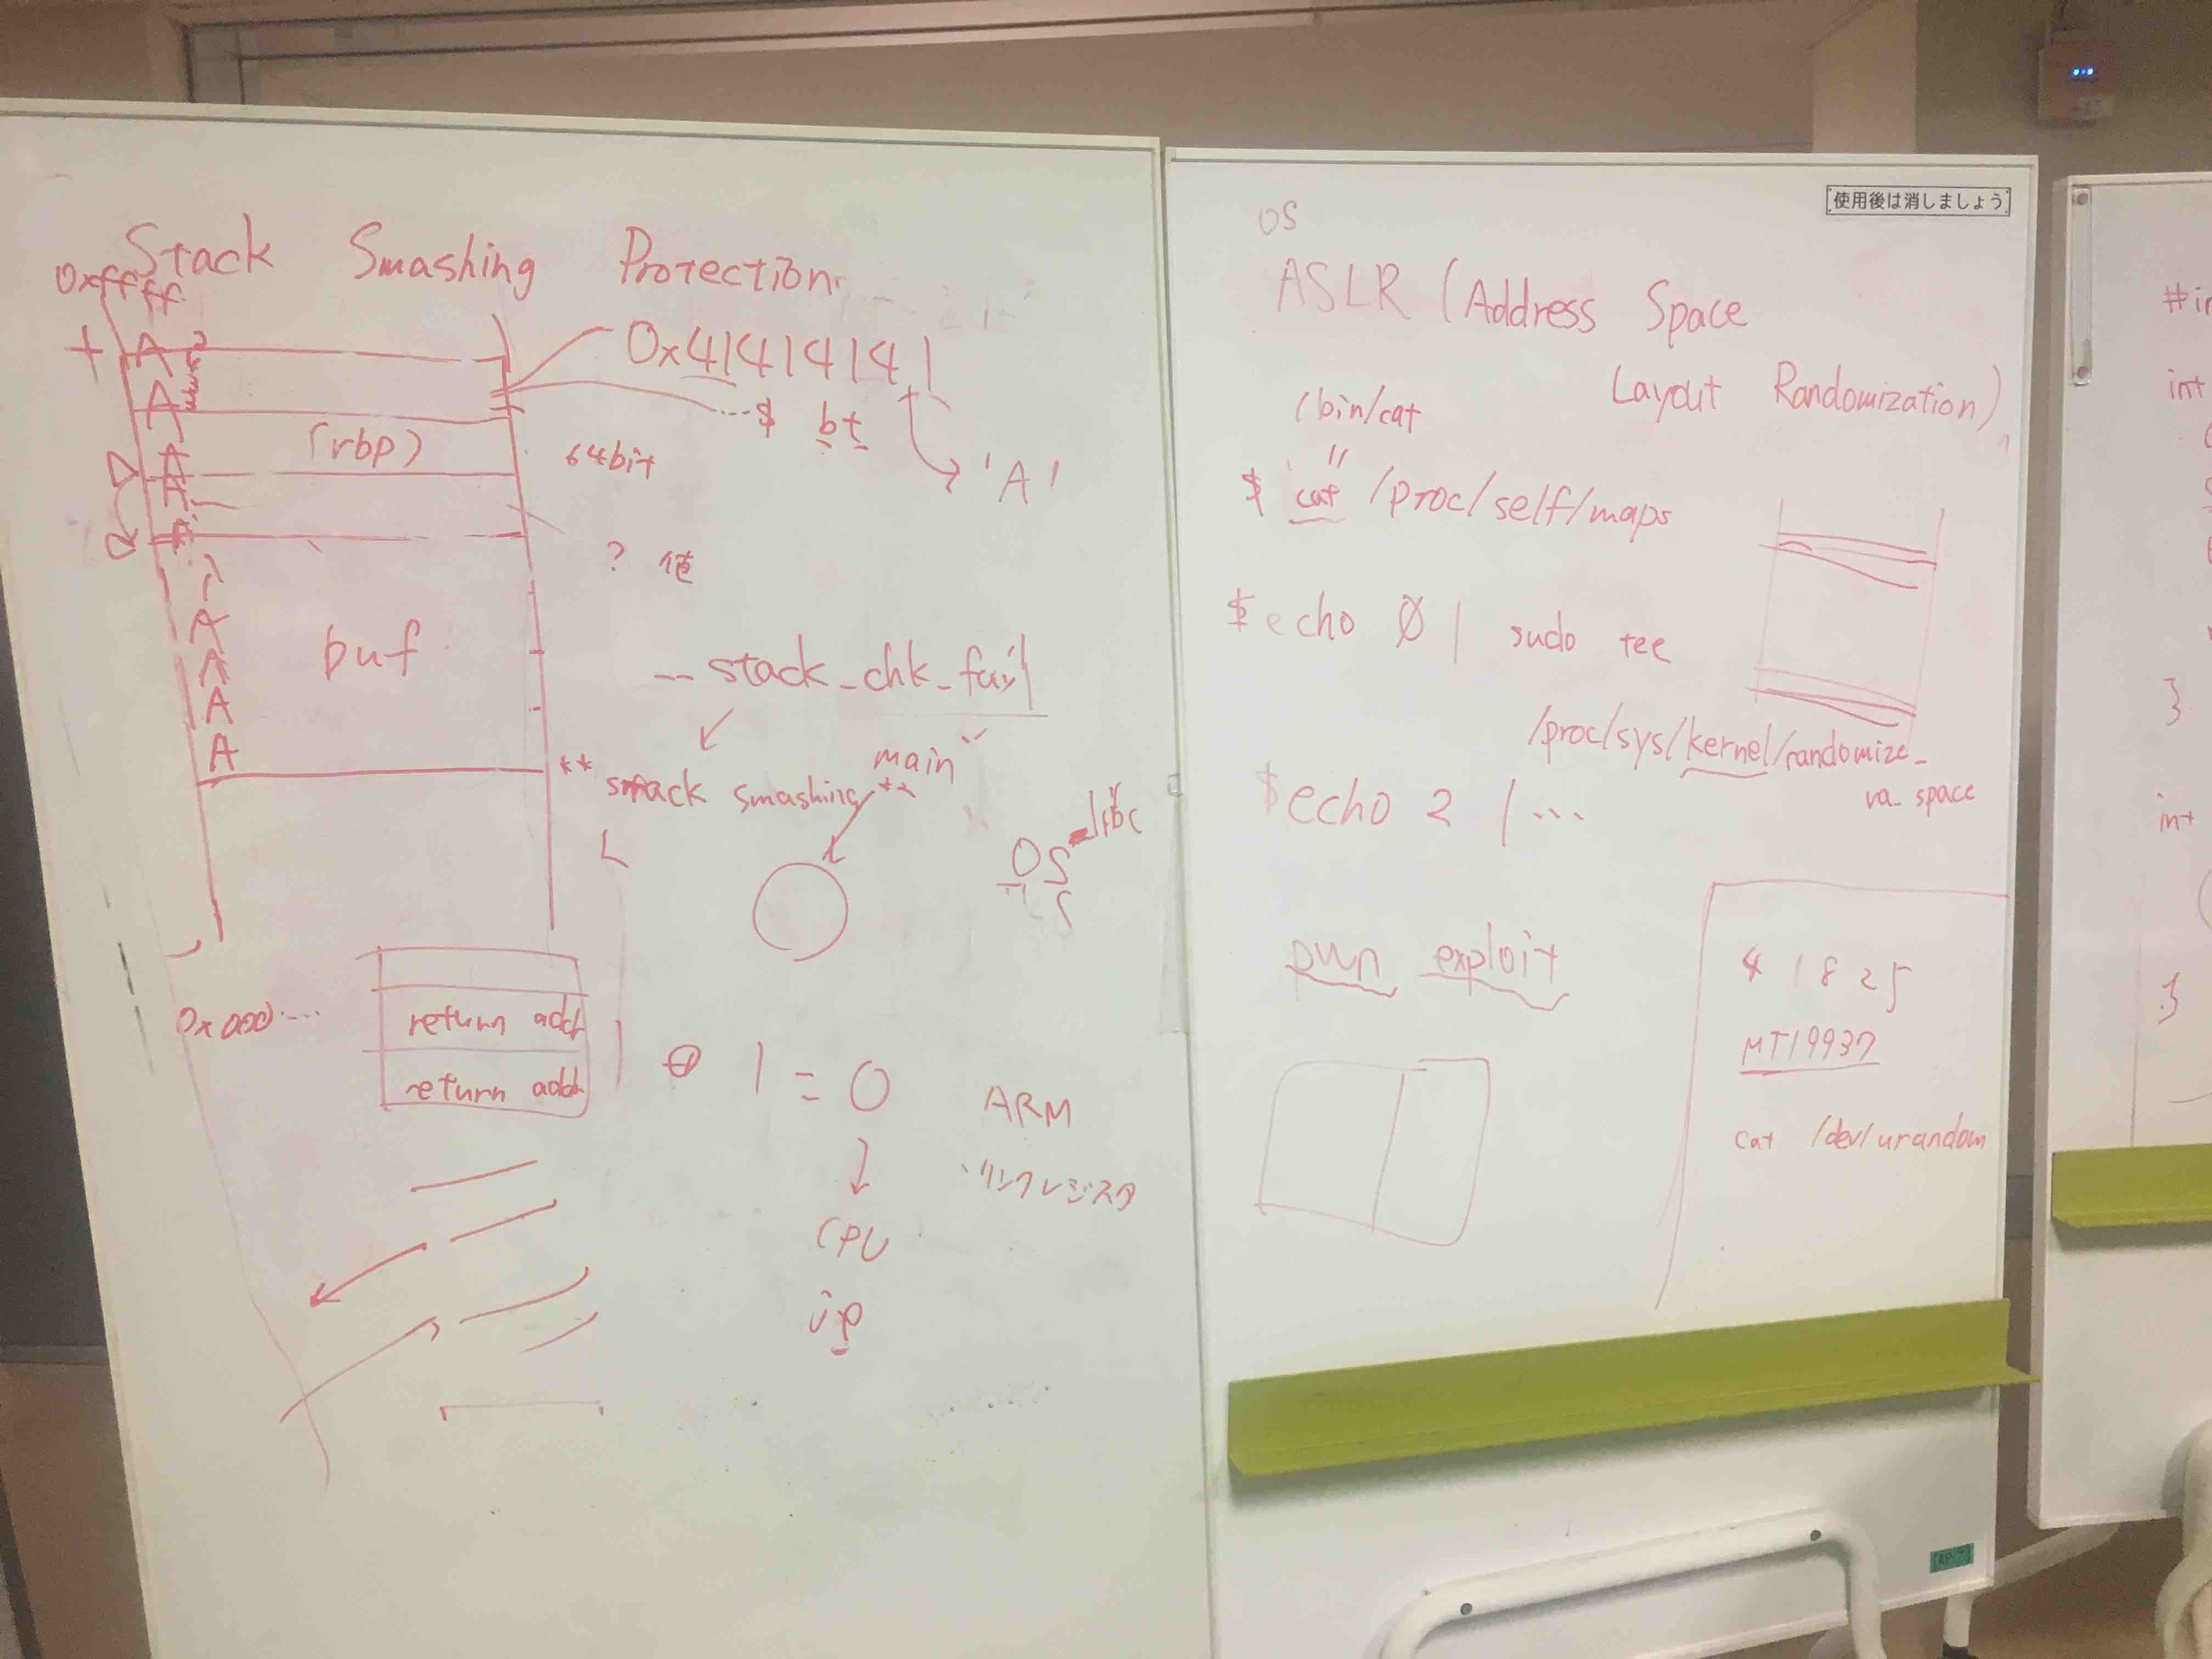 Stack Smashing Protection
0xffff
+ A
A
0x41414141
...$ bt
'A'
(rbp)
64bit
A
A
A
? 値
A
A
buf
A
A
A
__stack_chk_fail
main
** smack smashing **
libc
OS
0x000...
return addr
return addr
⊕ 1 = 0
CPU
ip
ARM
リンクレジスタ
使用後は消しましょう
OS
ASLR (Address Space
Layout Randomization)
/bin/cat
"
$ cat /proc/self/maps
$ echo 0 | sudo tee
/proc/sys/kernel/randomize_
va_space
$ echo 2 | ...
pwn exploit
4 1 8 2 5
MT19937
cat /dev/urandom
int
}
int
}